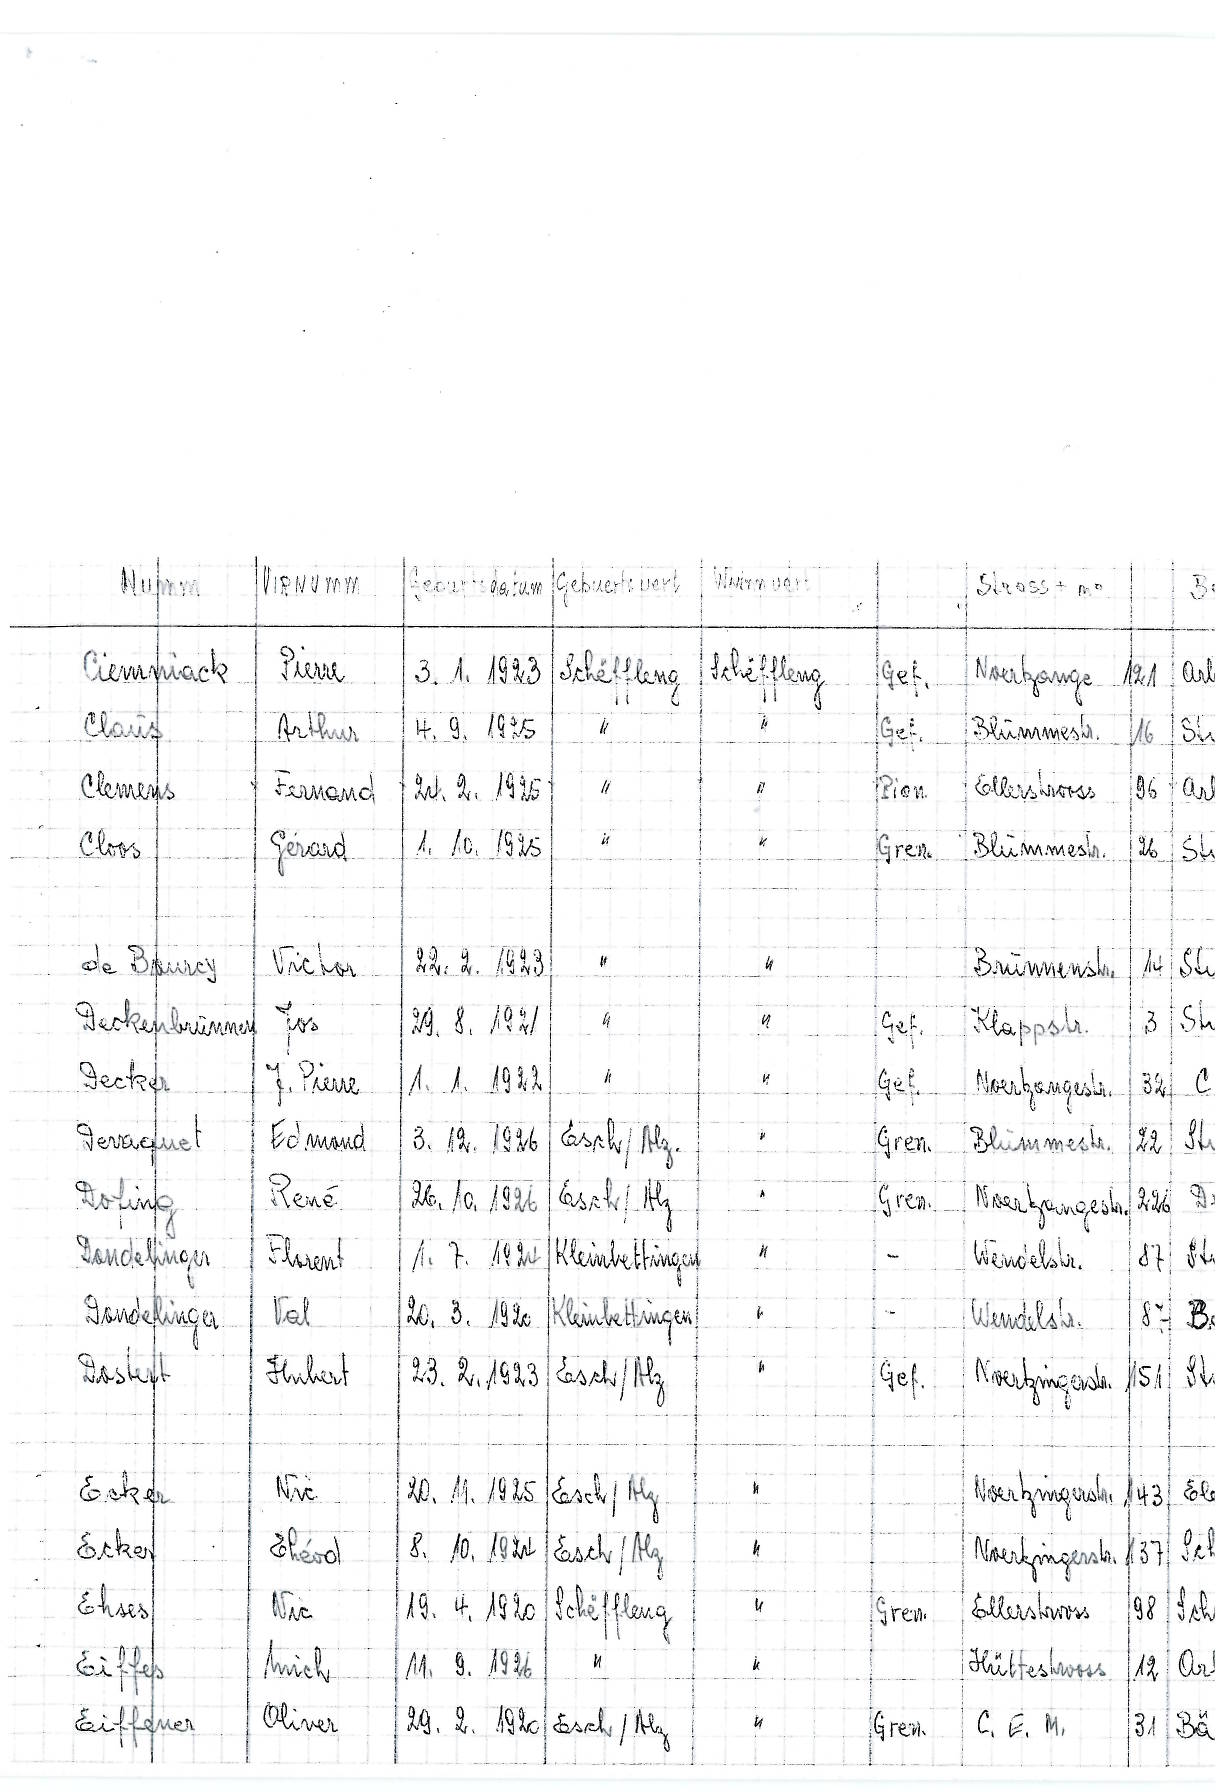 Numm VIRNUMM Geburtsdatum Gebuertsuert Wunnuert Stross + no
Ciemniack Pierre 3. 1. 1923 Schëffleng Schëffleng Gef. Noertzange 121 Arb
Claus Arthur 4. 9. 1925 " " Gef. Blummestr. 16 St
Clemens Fernand 24. 2. 1925 " " Pion. Ellerstrooss 96 Arb
Cloos Gérard 1. 10. 1925 " " Gren. Blummestr. 26 St
de Bourcy Victor 22. 2. 1923 " " Brunnenstr. 14 St
Deckenbrunnen Jos 29. 8. 1921 " " Gef. Klappstr. 3 St
Decker J. Pierre 1. 1. 1922 " " Gef. Noertzangestr. 32 C
Devaquet Edmond 3. 12. 1926 Esch/Alz. " Gren. Blummestr. 22 St
Dofing René 26. 10. 1926 Esch/Alz " Gren. Noertzangestr. 226 D
Dondelinger Florent 1. 7. 1924 Kleinbettingen " - Wendelstr. 87 St
Dondelinger Val 20. 3. 1920 Kleinbettingen " - Wendelstr. 87 B
Dostert Hubert 23. 2. 1923 Esch/Alz " Gef. Noertzingerstr. 151 St
Ecker Nic 20. 11. 1925 Esch/Alz " Noertzingerstr. 143 Ele
Ecker Théod 8. 10. 1924 Esch/Alz " Noertzingerstr. 137 Sch
Ehses Nic 19. 4. 1920 Schëffleng " Gren. Ellerstrooss 98 Sch
Eiffes Mich 11. 9. 1926 " " Hüttestrooss 12 Ar
Eiffener Oliver 29. 2. 1920 Esch/Alz " Gren. C. E. M. 31 Bä